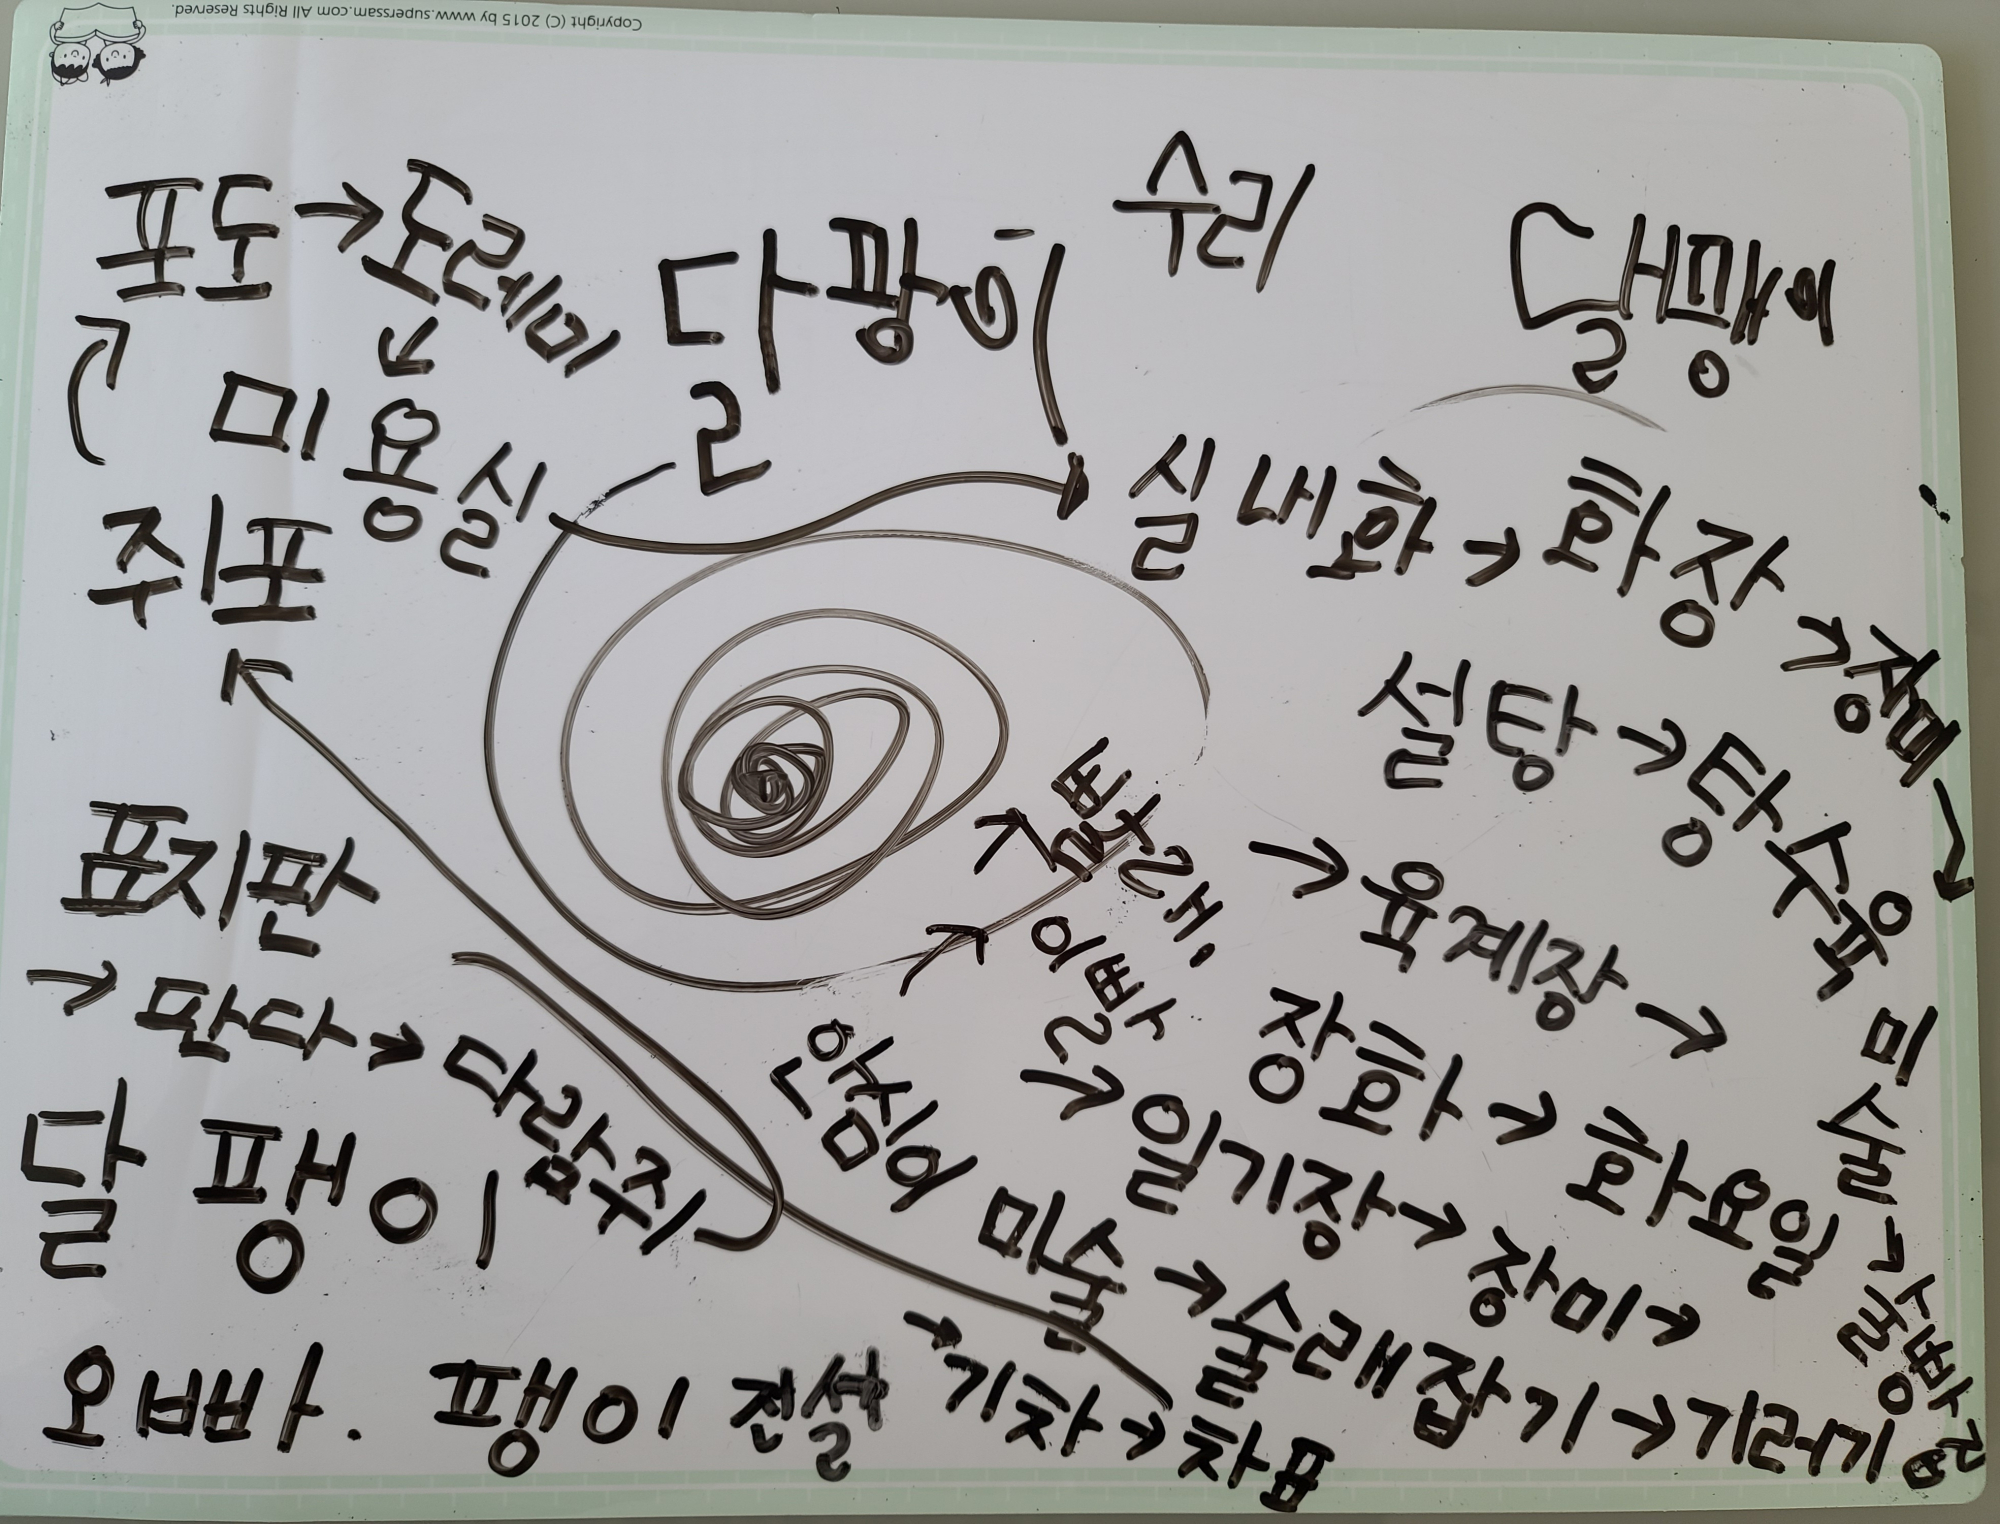 Copyright (C) 2015 by www.superssam.com All Rights Reserved.
포도→도레미
달팡이
수리
댈맹이
미용실
쥐포
실내화→화장→장미→
설탕→탕수육
→육계장→
빨래
이빨
표지판
→판다→다람쥐
장화→화요일
미술→술방
안심이
→일기장→장미→
달팽이
미술→술래잡기→기러기
오빠. 팽이 전설
기차→차표